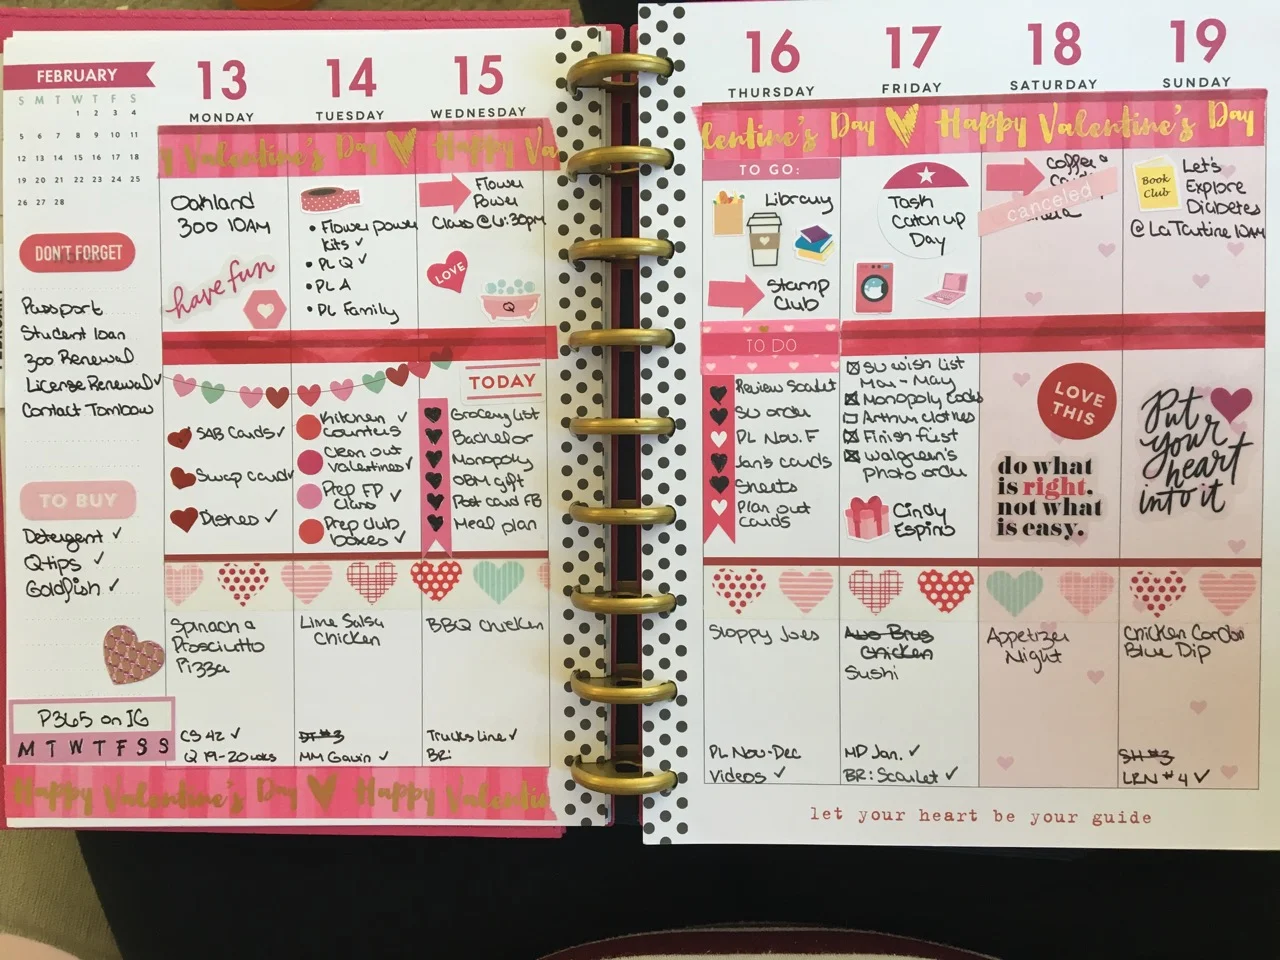 FEBRUARY
S M T W T F S
1 2 3 4
5 6 7 8 9 10 11
12 13 14 15 16 17 18
19 20 21 22 23 24 25
26 27 28
DON'T FORGET
Passport
Student loan
300 Renewal
License Renewal ✓
Contact Tombow
TO BUY
Detergent ✓
Qtips ✓
Goldfish ✓
P365 on IG
M T W T F S S
13
MONDAY
14
TUESDAY
15
WEDNESDAY
y Valentine's Day Happy Va
Oakland
300 10AM
have fun
• Flower power
Kits ✓
• PL Q ✓
• PL A
• PL Family
Flower
Power
Class @ 6:30pm
LOVE
Q
SAB Cards ✓
Swap Card ✓
Dishes ✓
Kitchen ✓
counters
Clean out
valentines ✓
Prep FP ✓
class
Prep club
boxes ✓
TODAY
Grocery list
Bachelor
Monopoly
OBM gift
Post card FB
Meal plan
Spinach &
Prosciutto
Pizza
CS 42 ✓
Q 19-20 wks
Lime Salsa
Chicken
DT #3
MM Gavin ✓
BBQ Chicken
Trucks Line ✓
BR:
Happy Valentine's Day Happy Valentin
16
THURSDAY
17
FRIDAY
18
SATURDAY
19
SUNDAY
lentine's Day Happy Valentine's Day
TO GO:
Library
Stamp
Club
Task
Catch up
Day
Coffee &
canceled
Book
Club
Let's
Explore
Diabetes
@ La Tartine 10AM
TO DO
Review Scarlet
SU order
PL Nov. F
Jan's cards
Sheets
Plan out
cards
SU wish list
Mar - May
Monopoly Codes
Arthur clothes
Finish fust
Walgreen's
photo order
Cindy
Espino
LOVE
THIS
do what
is right.
not what
is easy.
Put
your
heart
into it
Sloppy Joes
PL Nov-Dec
Videos ✓
Chicken
Sushi
MD Jan. ✓
BR: Scarlet ✓
Appetizer
Night
Chicken Cordon
Blue Dip
SH #3
LRN #4 ✓
let your heart be your guide